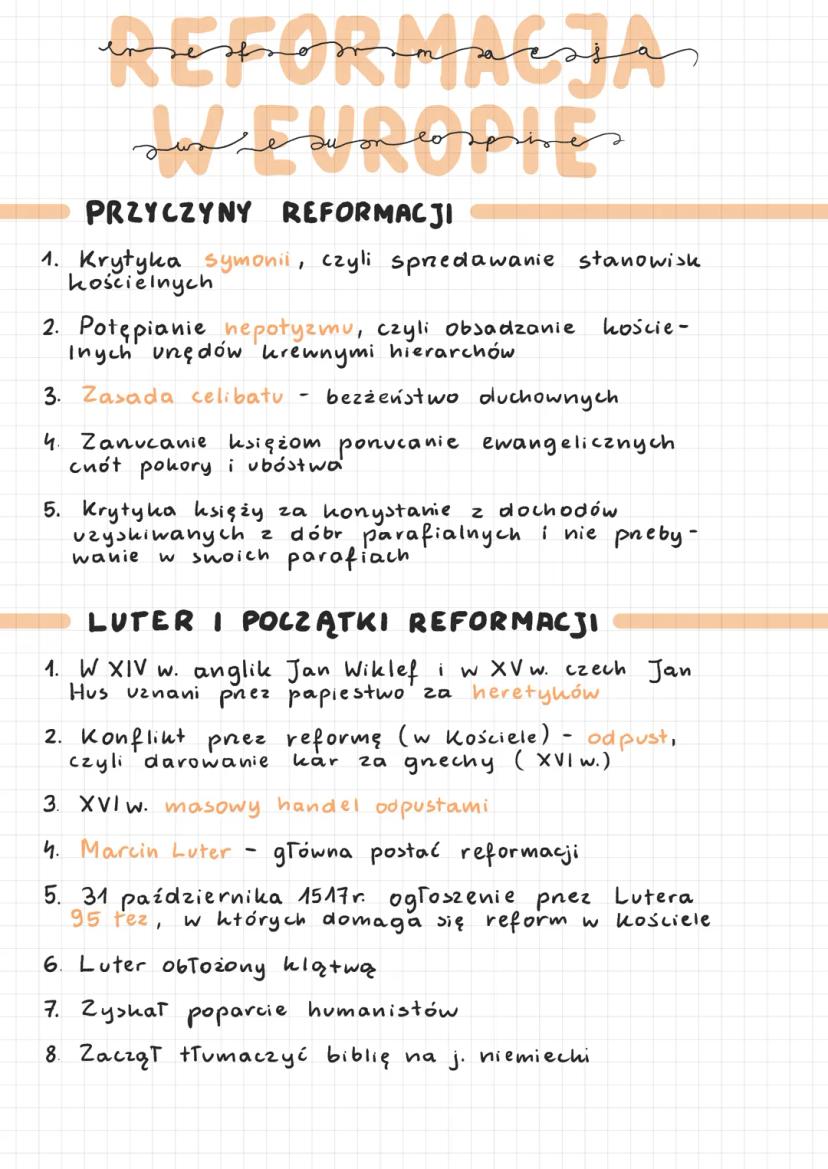 REFORMACJA
reformacja
W EUROPIE
w europie
PRZYCZYNY REFORMACJI
1. Krytyka symonii, czyli sprzedawanie stanowisk
kościelnych
2. Potępianie nepotyzmu, czyli obsadzanie koście-
lnych urzędów krewnymi hierarchów
3. Zasada celibatu - bezżeństwo duchownych
4. Zarzucanie księżom porzucanie ewangelicznych
cnót pokory i ubóstwa
5. Krytyka księży za korzystanie z dochodów
uzyskiwanych z dóbr parafialnych i nie przeby-
wanie w swoich parafiach
LUTER I POCZĄTKI REFORMACJI
1. W XIV w. anglik Jan Wiklef i w XV w. czech Jan
Hus uznani przez papiestwo za heretyków
2. Konflikt przez reformę (w Kościele) - odpust,
czyli darowanie kar za grzechy ( XVI w.)
3. XVI w. masowy handel odpustami
4. Marcin Luter - główna postać reformacji
5. 31 października 1517r. ogłoszenie przez Lutera
95 tez, w których domaga się reform w Kościele
6. Luter obłożony klątwą
7. Zyskał poparcie humanistów
8. Zaczął tłumaczyć biblię na j. niemiecki